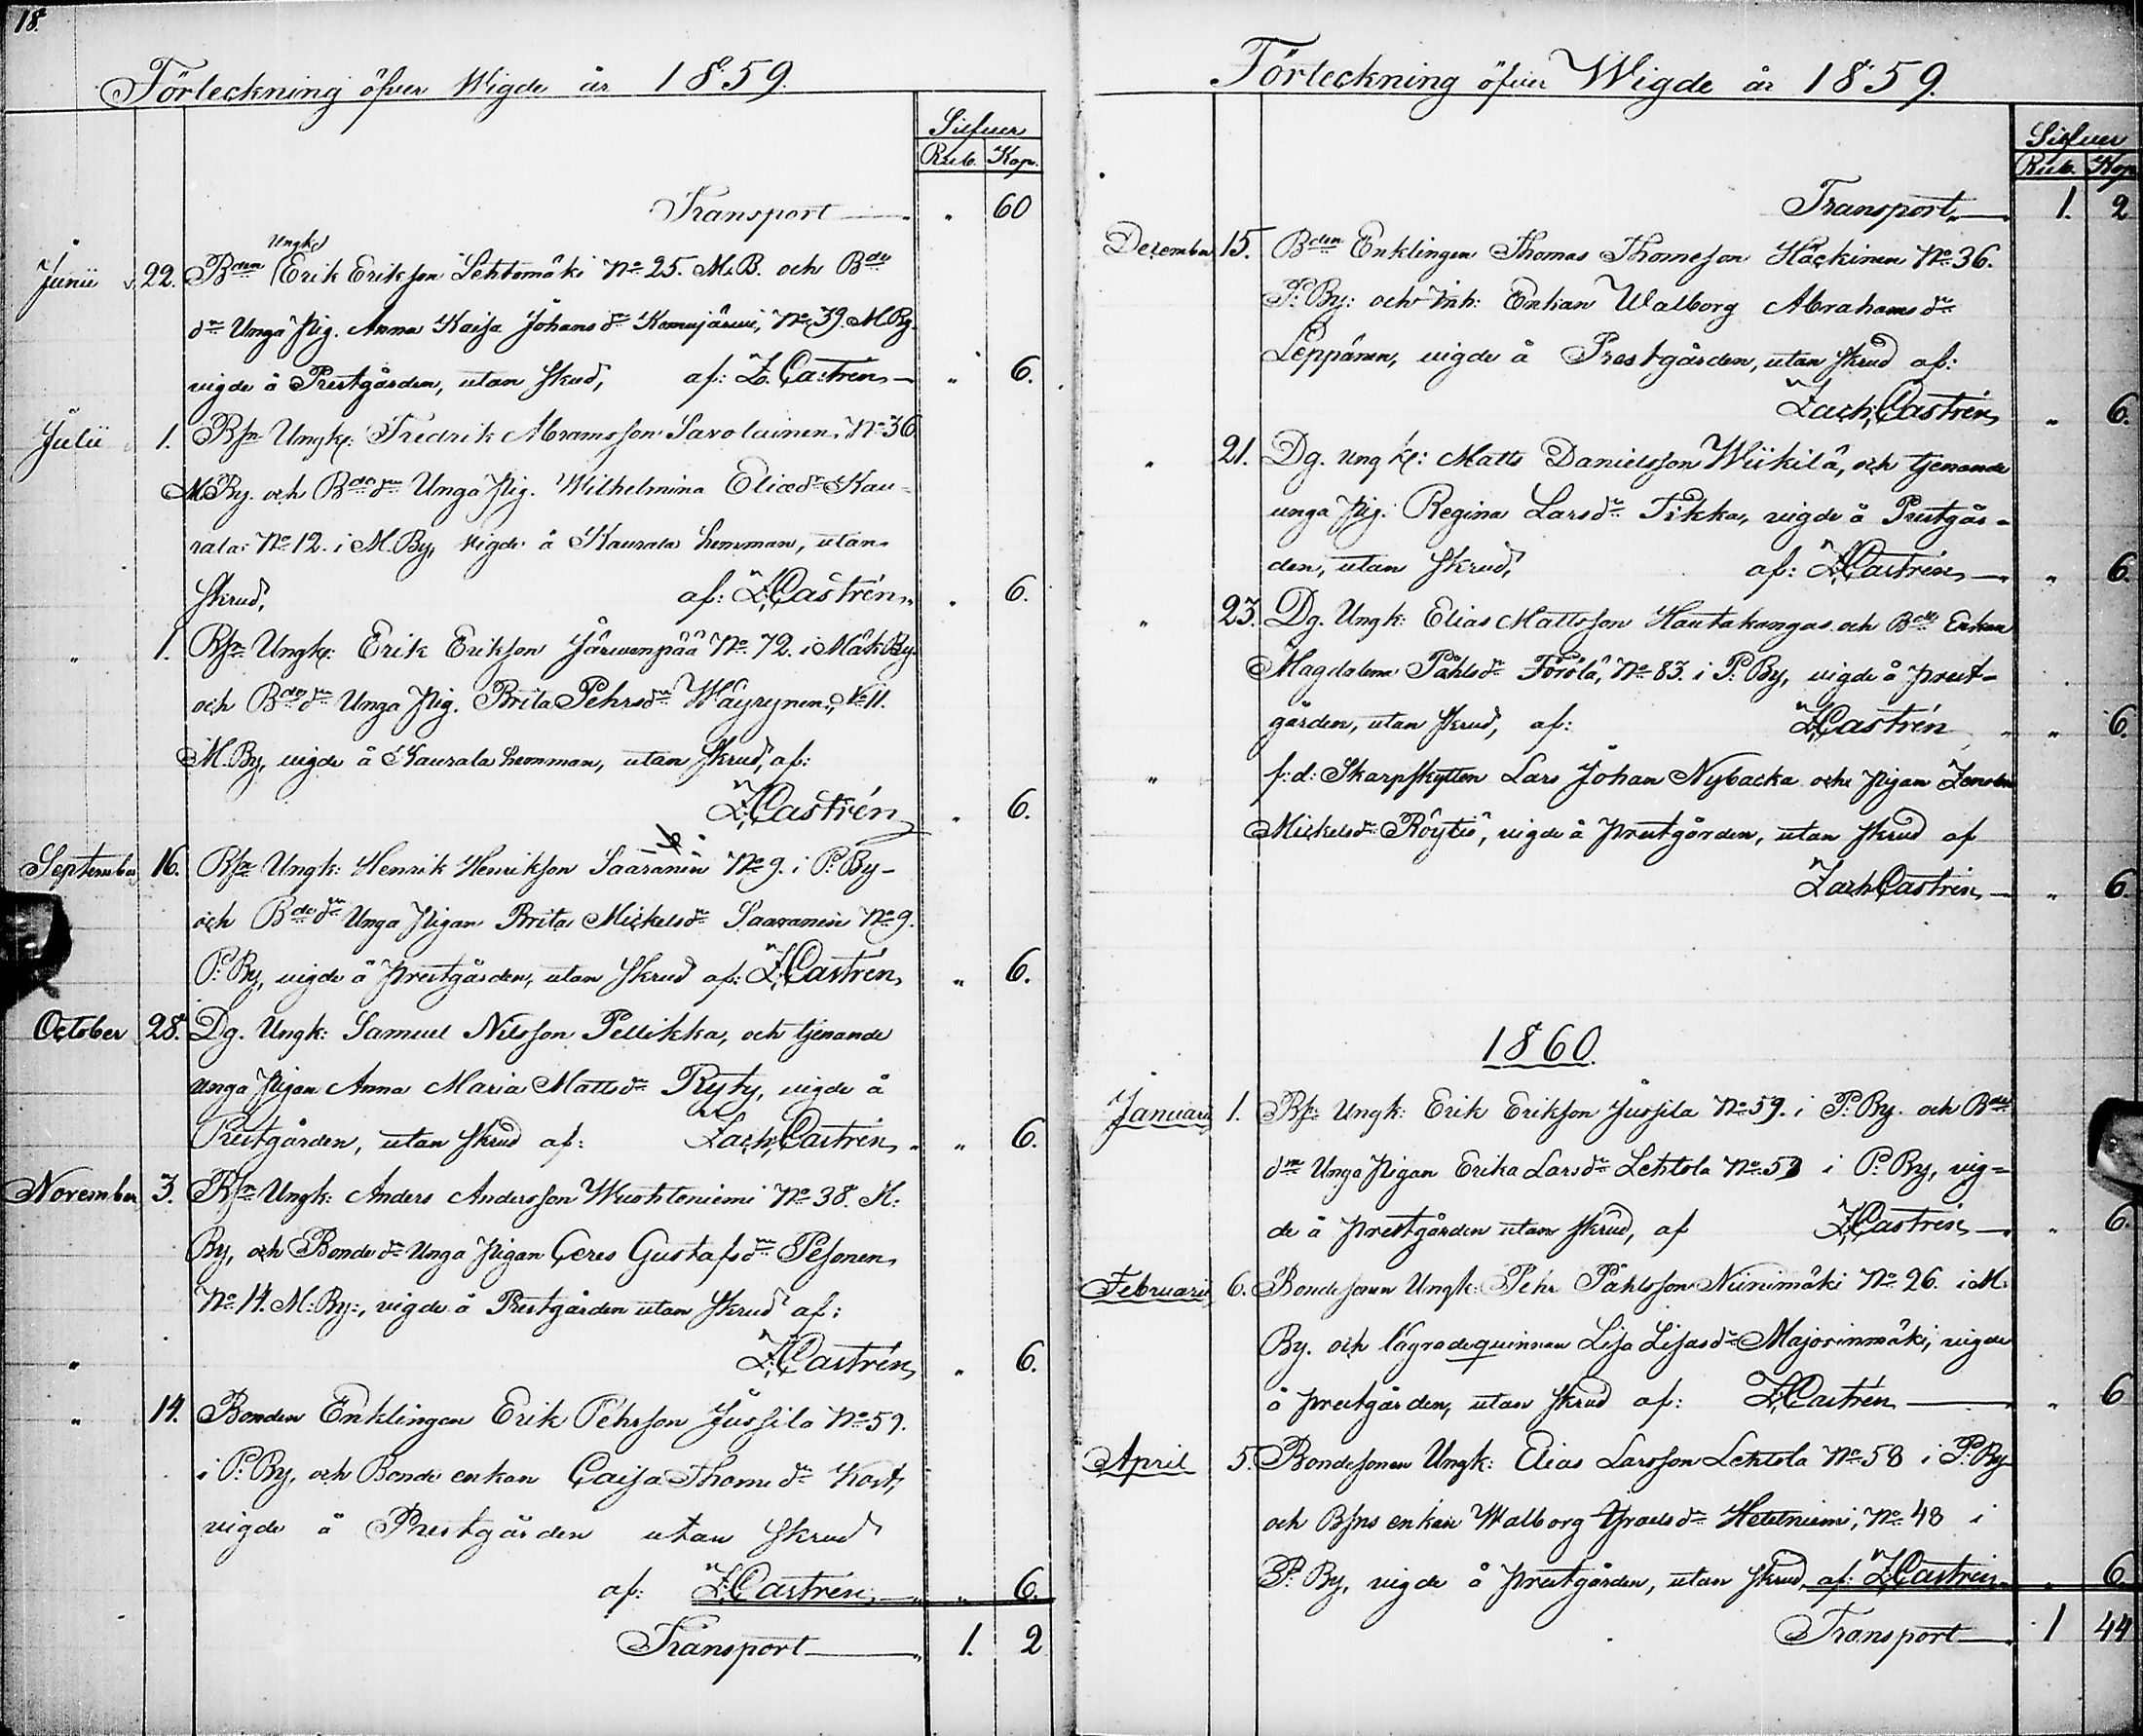 18.
Förteckning öfver Wigde år 1859.
Silfver
Rub. Kop.
Transport " 60
Junii 22. Bden Ungk. Erik Eriksson Lehtomäki No 25. M.B. och Bde
dr Unga Pig. Anna Kaisa Johans dr Komujärvi, No 39. M.By.
vigde å Prestgården, utan skrud, af: Z. Castrén " 6.
Julii 1. Bsn Ungk: Fredrik Abramsson Savolainen. No 36
M.By. och Bde dr Unga Pig. Wilhelmina Eliæ dr Kau-
rala No 12. i M.By, vigde å Kaurala hemman, utan
skrud, af: Z. Castrén " 6.
" 1. Bsn Ungk: Erik Eriksson Järvenpää No 72. i Mäk.By.
och Bde dr Unga Pig. Brita Pehrs dr Wäyrynen, No 11.
M.By, vigde å Kaurala hemman, utan skrud, af:
Z. Castrén " 6.
September 16. Bsn Ungk: Henrik Henriksson Saaranen No 9. i P.By-
och Bde dr Unga Pigan Brita Mickels dr Saaranen No 9.
P.By, vigde å prestgården, utan skrud af: Z. Castrén " 6.
October 28. Dg. Ungk: Samuel Nilsson Pellikka, och tjenande
unga Pigan Anna Maria Matts dr Ryty, vigde å
Prestgården, utan skrud af: Zach. Castrén " 6.
November 3. Bsn Ungk: Anders Andersson Wuohteniemi No 38. M:
By, och Bonde dr Unga Pigan Ceres Gustafs dr Pesonen,
No 14. M:By:, vigde å Prestgården utan skrud af:
" Z. Castrén " 6.
" 14. Bonden Enklingen Erik Pehrsson Jussila No 59.
i P:By, och Bonde enkan Caisa Thome dr Kort,
vigde å Prestgården utan skrud
af: Z. Castrén " 6.
Transport 1. 2
Förteckning öfver Wigde år 1859.
Silfver
Rub. Kop.
Transport 1. 2
December 15. Bden Enklingen Thomas Thomesson Häckinen No 36.
P:By: och Inh: Enkan Walborg Abrahams dr
Leppänen, vigde å Prestgården, utan skrud af:
Zach. Castrén " 6.
" 21. Dg. ungk: Matts Danielsson Wiikilä, och tjenande
unga Pig. Regina Lars dr Tikka, vigde å Prestgår-
den, utan skrud, af: Z. Castrén " 6.
" 23. Dg. Ungk: Elias Mattsson Hautakangas och Bde Enkan
Magdalena Påhls dr Törölä, No 83. i P:By, vigde å prest-
gården, utan skrud, af: Z. Castrén " 6.
" f:d: Skarpskytten Lars Johan Nybacka och Pigan
Mickels dr Röytiö, vigde å prestgården, utan skrud af
Zach Castrén " 6
1860.
Januarii 1. Bsn Ungk: Erik Eriksson Jussila No 59. i P:By. och Bde
dr Unga Pigan Erika Lars dr Lehtola No 58 i P:By, vig-
de å prestgården utan skrud, af Z. Castrén " 6
Februarii 6. Bondesonen Ungk: Pehr Påhlsson Niinimäki No 26. i M:
By. och lägradequinnan Lisa Lisas dr Majorinmäki, vigde
å prestgården, utan skrud af: Z. Castrén " 6
April 5. Bondesonen Ungk: Elias Larsson Lehtola No 58 i P:By
och Bsns enkan Walborg Israels dr Heteniemi, No 48 i
P:By, vigde å prestgården, utan skrud, af: Z. Castrén " 6.
Transport 1 44